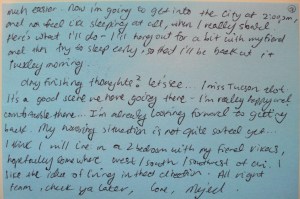 much easier. Now I'm going to get into the city at 2:00am,
and not feel like sleeping at all, when I really should
here's what I'll do - I'll hang out for a bit with my friend
and then try to sleep early, so that I'll be back at it
Tuesday morning...
Any finishing thoughts? Let's see... I miss Tucson that
It's a good scene we have going there - I'm really happy and
comfortable there... I'm already looking forward to getting
back. My housing situation is not quite sorted yet...
I think I will live in a 2 bedroom with my friend
hopefully somewhere west / south / southwest of
I like the idea of living in that direction. All right
team, check ya later, Love,